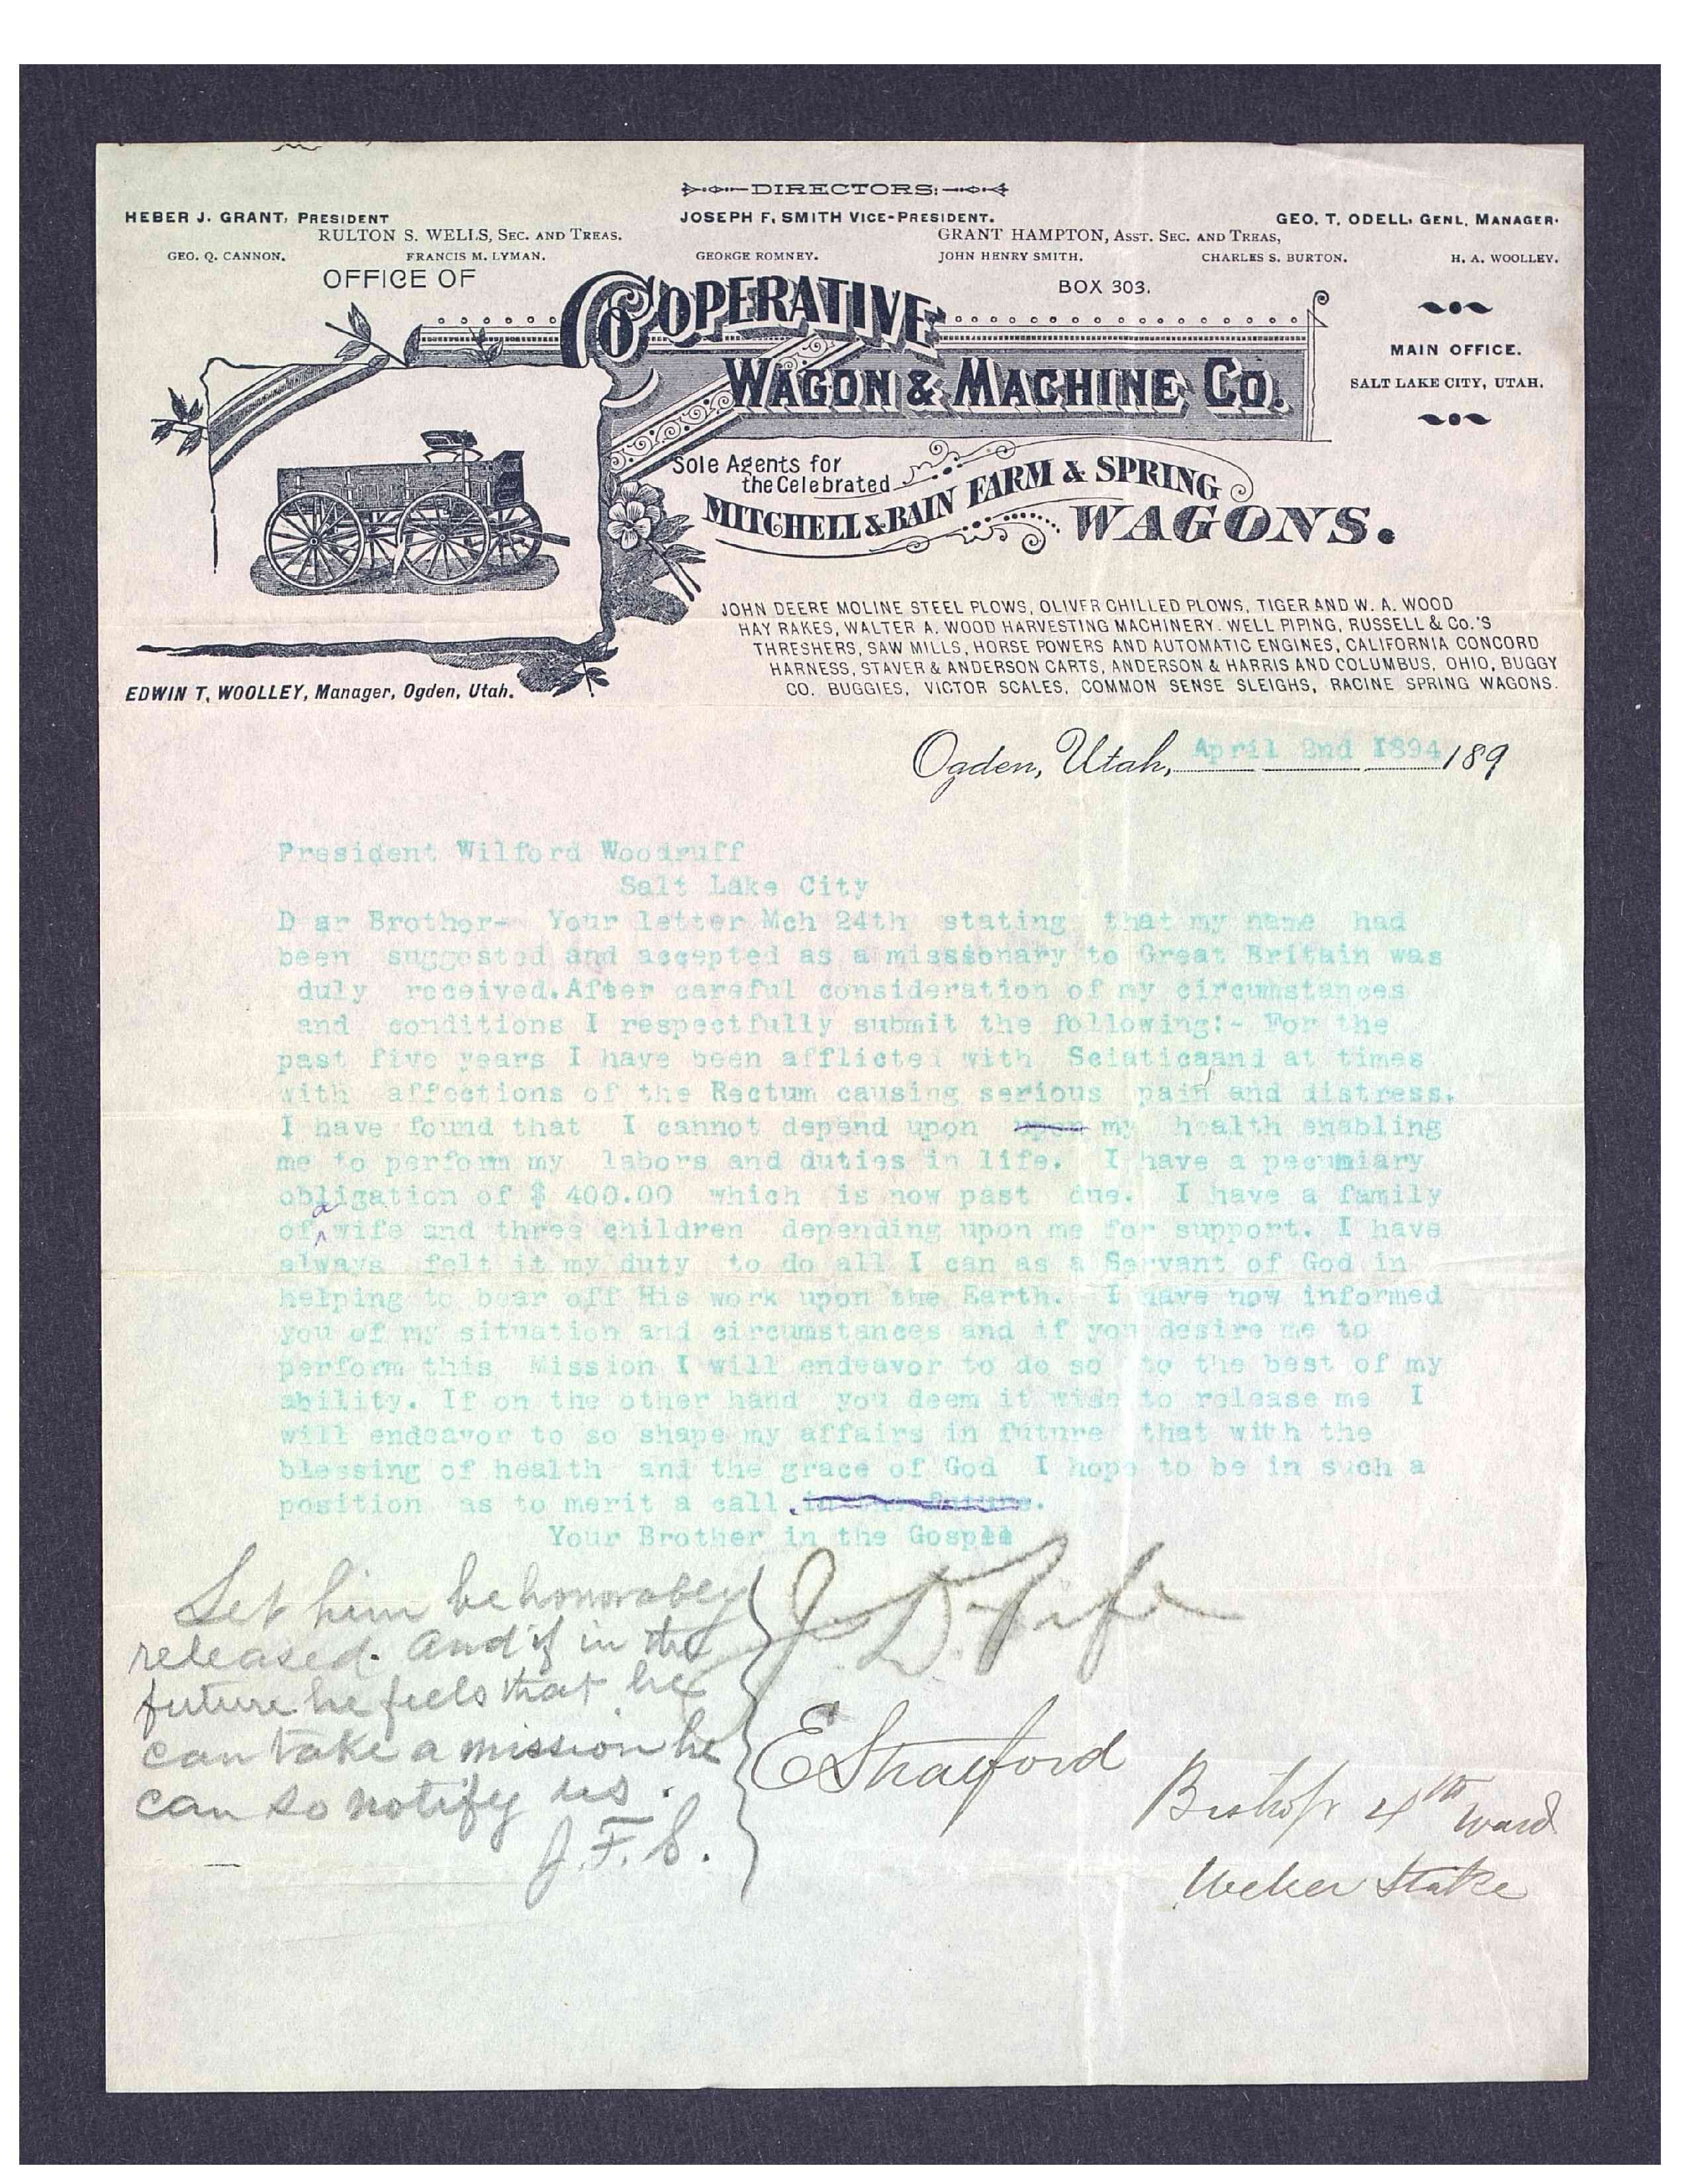 DIRECTORS:
HEBER J. GRANT, PRESIDENT JOSEPH F. SMITH VICE-PRESIDENT. GEO. T. ODELL, GENL, MANAGER.
RULTON S. WELLS, SEC. AND TREAS. GRANT HAMPTON, ASST. SEC. AND TREAS,
GEO. Q. CANNON. FRANCIS M. LYMAN. GEORGE ROMNEY. JOHN HENRY SMITH. CHARLES S. BURTON. H. A. WOOLLEY.
OFFICE OF
BOX 303.
COOPERATIVE
WAGON & MACHINE CO.
MAIN OFFICE.
SALT LAKE CITY, UTAH.
Sole Agents for
the Celebrated
MITCHELL & BAIN FARM & SPRING
WAGONS.
JOHN DEERE MOLINE STEEL PLOWS, OLIVER CHILLED PLOWS, TIGER AND W. A. WOOD
HAY RAKES, WALTER A. WOOD HARVESTING MACHINERY. WELL PIPING, RUSSELL & Co.'S
THRESHERS, SAW MILLS, HORSE POWERS AND AUTOMATIC ENGINES, CALIFORNIA CONCORD
HARNESS, STAVER & ANDERSON CARTS, ANDERSON & HARRIS AND COLUMBUS, OHIO, BUGGY
CO. BUGGIES, VICTOR SCALES, COMMON SENSE SLEIGHS, RACINE SPRING WAGONS.
EDWIN T. WOOLLEY, Manager, Ogden, Utah.
Ogden, Utah, April 2nd 1894 189
President Wilford Woodruff
Salt Lake City
D ar Brother- Your letter Mch 24th stating that my name had
been suggested and accepted as a misssonary to Great Britain was
duly received. After careful consideration of my circumstances
and conditions I respectfully submit the following:- For the
past five years I have been afflicted with Sciaticaand at times
with affections of the Rectum causing serious pain and distress.
I have found that I cannot depend upon upon my health enabling
me to perform my labors and duties in life. I have a pecuniary
obligation of $ 400.00 which is now past due. I have a family
of a wife and three children depending upon me for support. I have
always felt it my duty to do all I can as a Servant of God in
helping to bear off His work upon the Earth. I have now informed
you of my situation and circumstances and if you desire me to
perform this Mission I will endeavor to do so to the best of my
ability. If on the other hand you deem it wise to release me I
will endeavor to so shape my affairs in future that with the
blessing of health and the grace of God I hope to be in such a
position as to merit a call. in the future.
Your Brother in the Gospel
J. D. Fife
Let him be honorabley
released. And if in the
future he feels that he
can take a mission he
can so notify us.
J. F. S.
E Stratford
Bishop 4th ward
Weber Stake